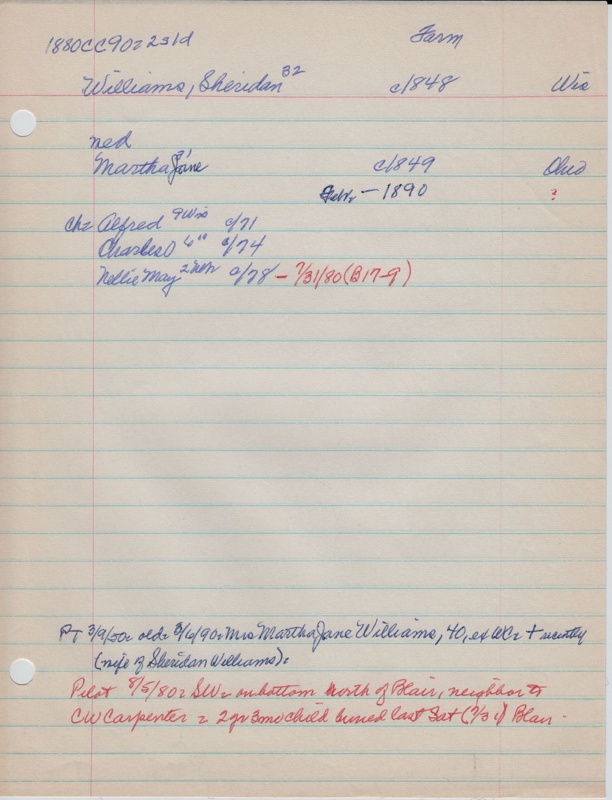 1880CC90= 231d Farm
Williams, Sheridan 32 c1848 Wis
med
Martha Jane 31 c1849 Ohio
Febr - 1890 ?
ch= Alfred 9 Wis c/71
Charles O 6 " c/74
Nellie May 2 Neb c/78 - 7/31/80 (B17-9)
PT 3/9/50= old= 3/6/90= Mrs Martha Jane Williams, 40, ex WC= + recently
(wife of Sheridan Williams)=
Pilot 8/5/80= SW= on bottom north of Blair, neighbor to
CW Carpenter = 2 yr 3 mo child buried last Sat (7/31) Blair.